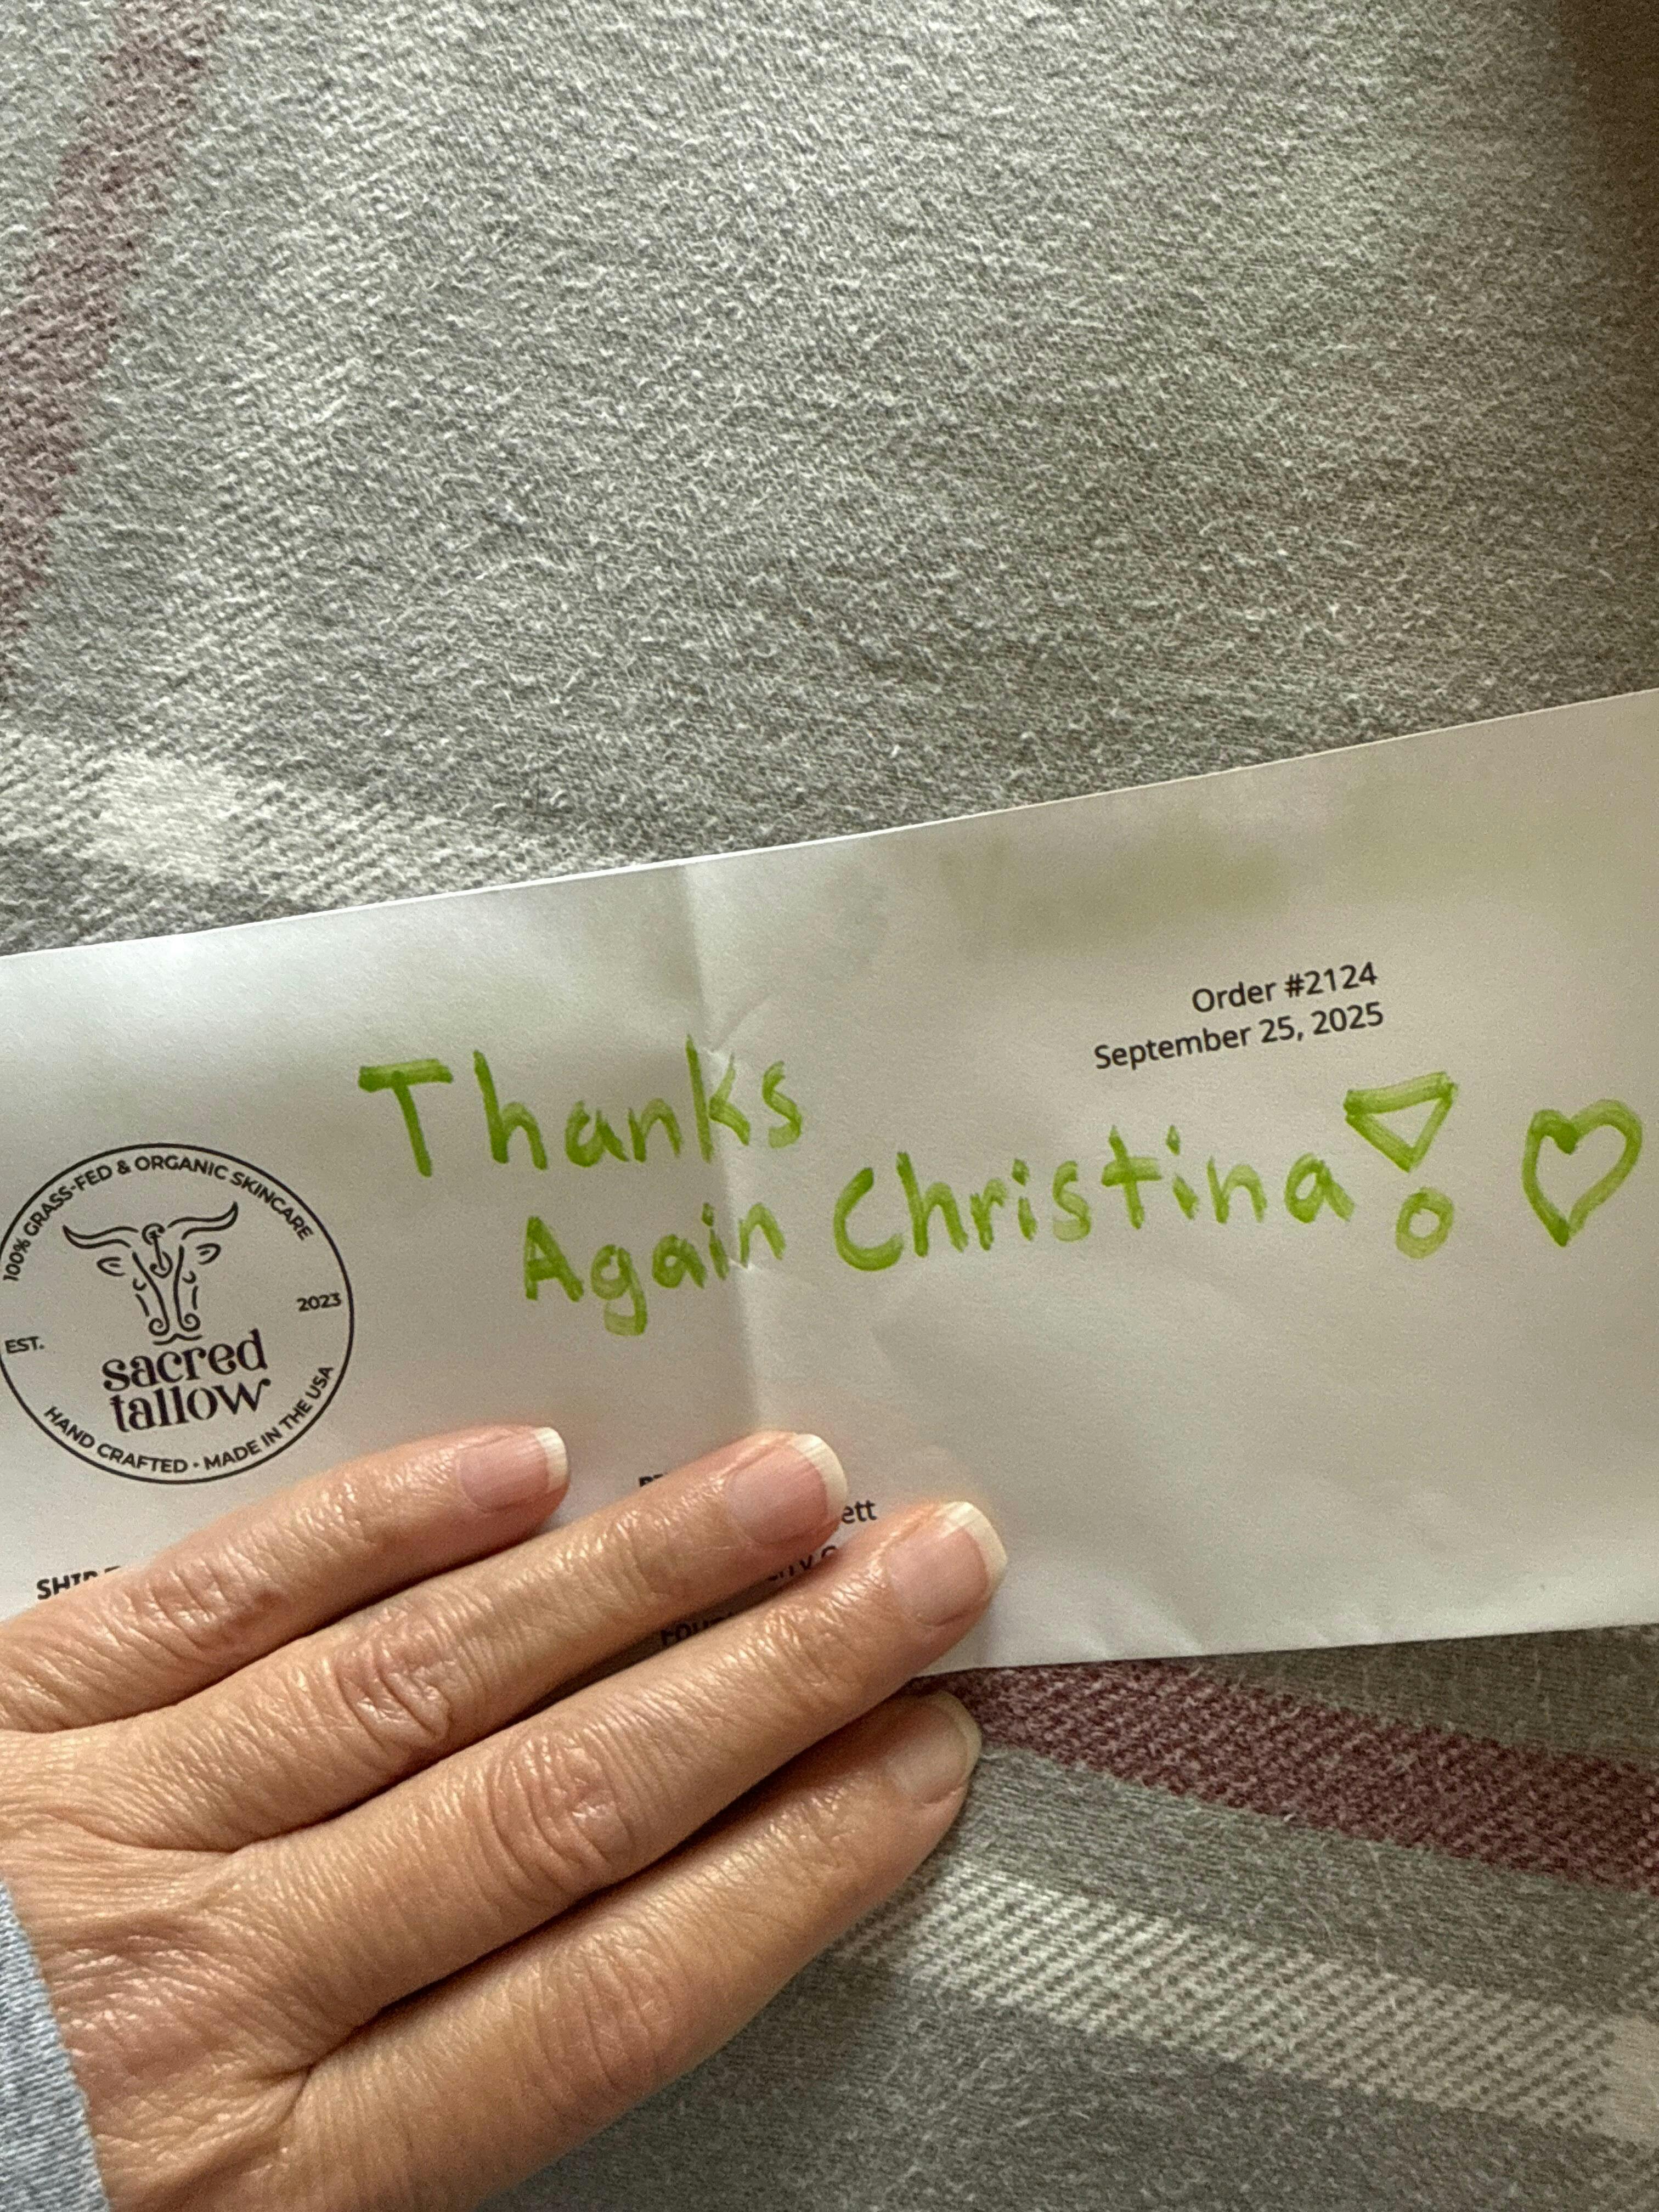 Order #2124
September 25, 2025
Thanks
Again Christina!
100% GRASS-FED & ORGANIC SKINCARE
EST. 2023
sacred
tallow
HAND CRAFTED • MADE IN THE USA
ett
SHIP